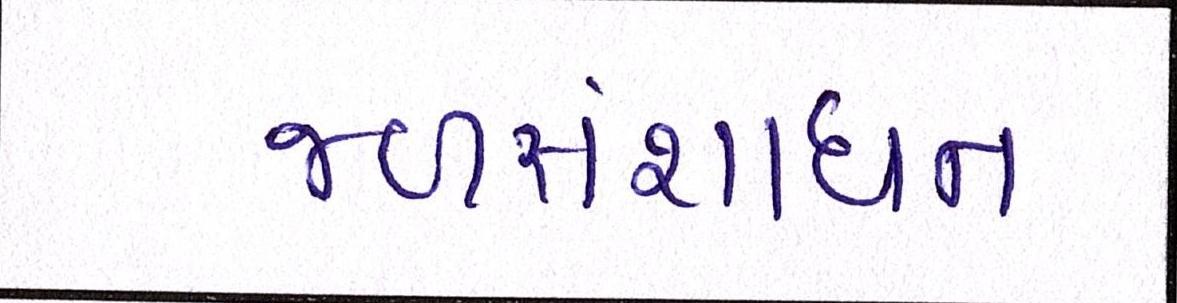 જળસંશાધન